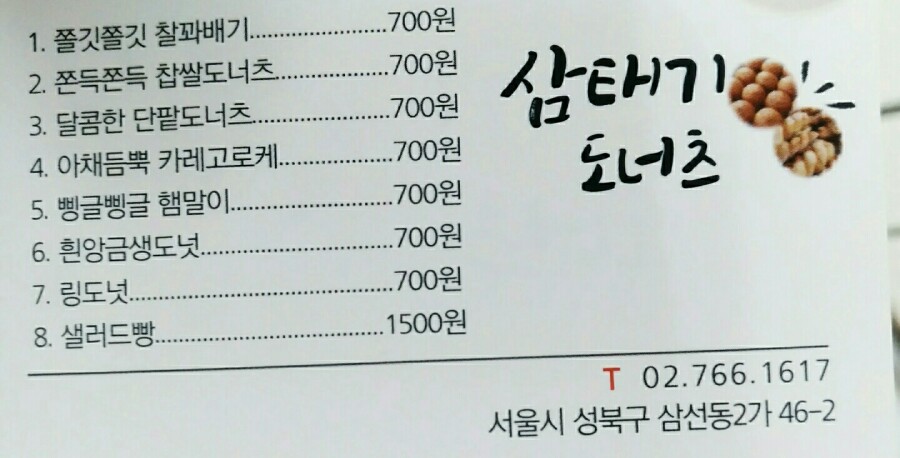 1. 쫄깃쫄깃 찰꽈배기..............................700원
2. 쫀득쫀득 찹쌀도너츠.........................700원
3. 달콤한 단팥도너츠..............................700원
4. 아채듬뿍 카레고로케.........................700원
5. 삥글삥글 햄말이...................................700원
6. 흰앙금생도넛.........................................700원
7. 링도넛........................................................700원
8. 샐러드빵.................................................1500원
삼태기
도너츠
T 02.766.1617
서울시 성북구 삼선동2가 46-2